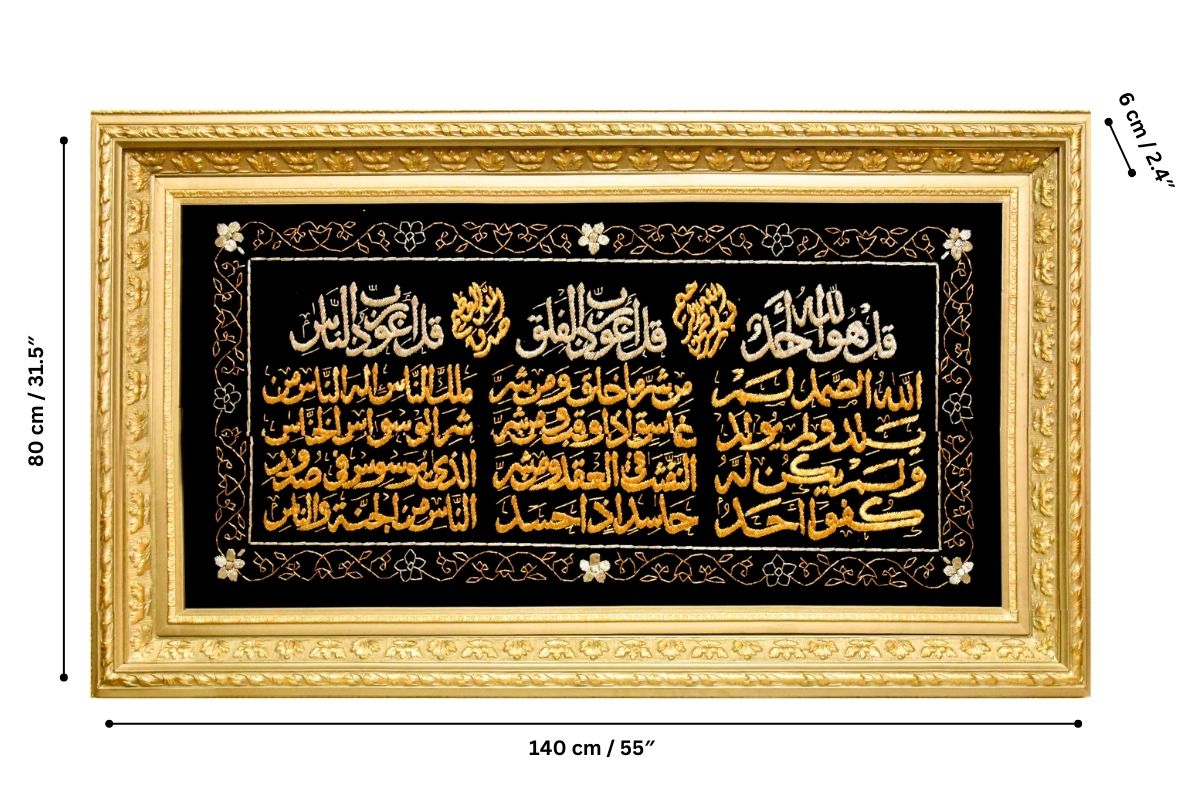 6 cm / 2.4″
80 cm / 31.5″
قل هو الله أحد
الله الصمد لم
يلد ولم يولد
ولم يكن له
كفوا أحد
بسم الله الرحمن الرحيم
قل أعوذ برب الفلق
من شر ما خلق ومن شر
غاسق اذا وقب ومن شر
النفثت في العقد ومن شر
حاسد اذا حسد
صدق الله العظيم
قل أعوذ برب الناس
ملك الناس اله الناس من
شر الوسواس الخناس
الذي يوسوس في صدور
الناس من الجنة والناس
140 cm / 55″